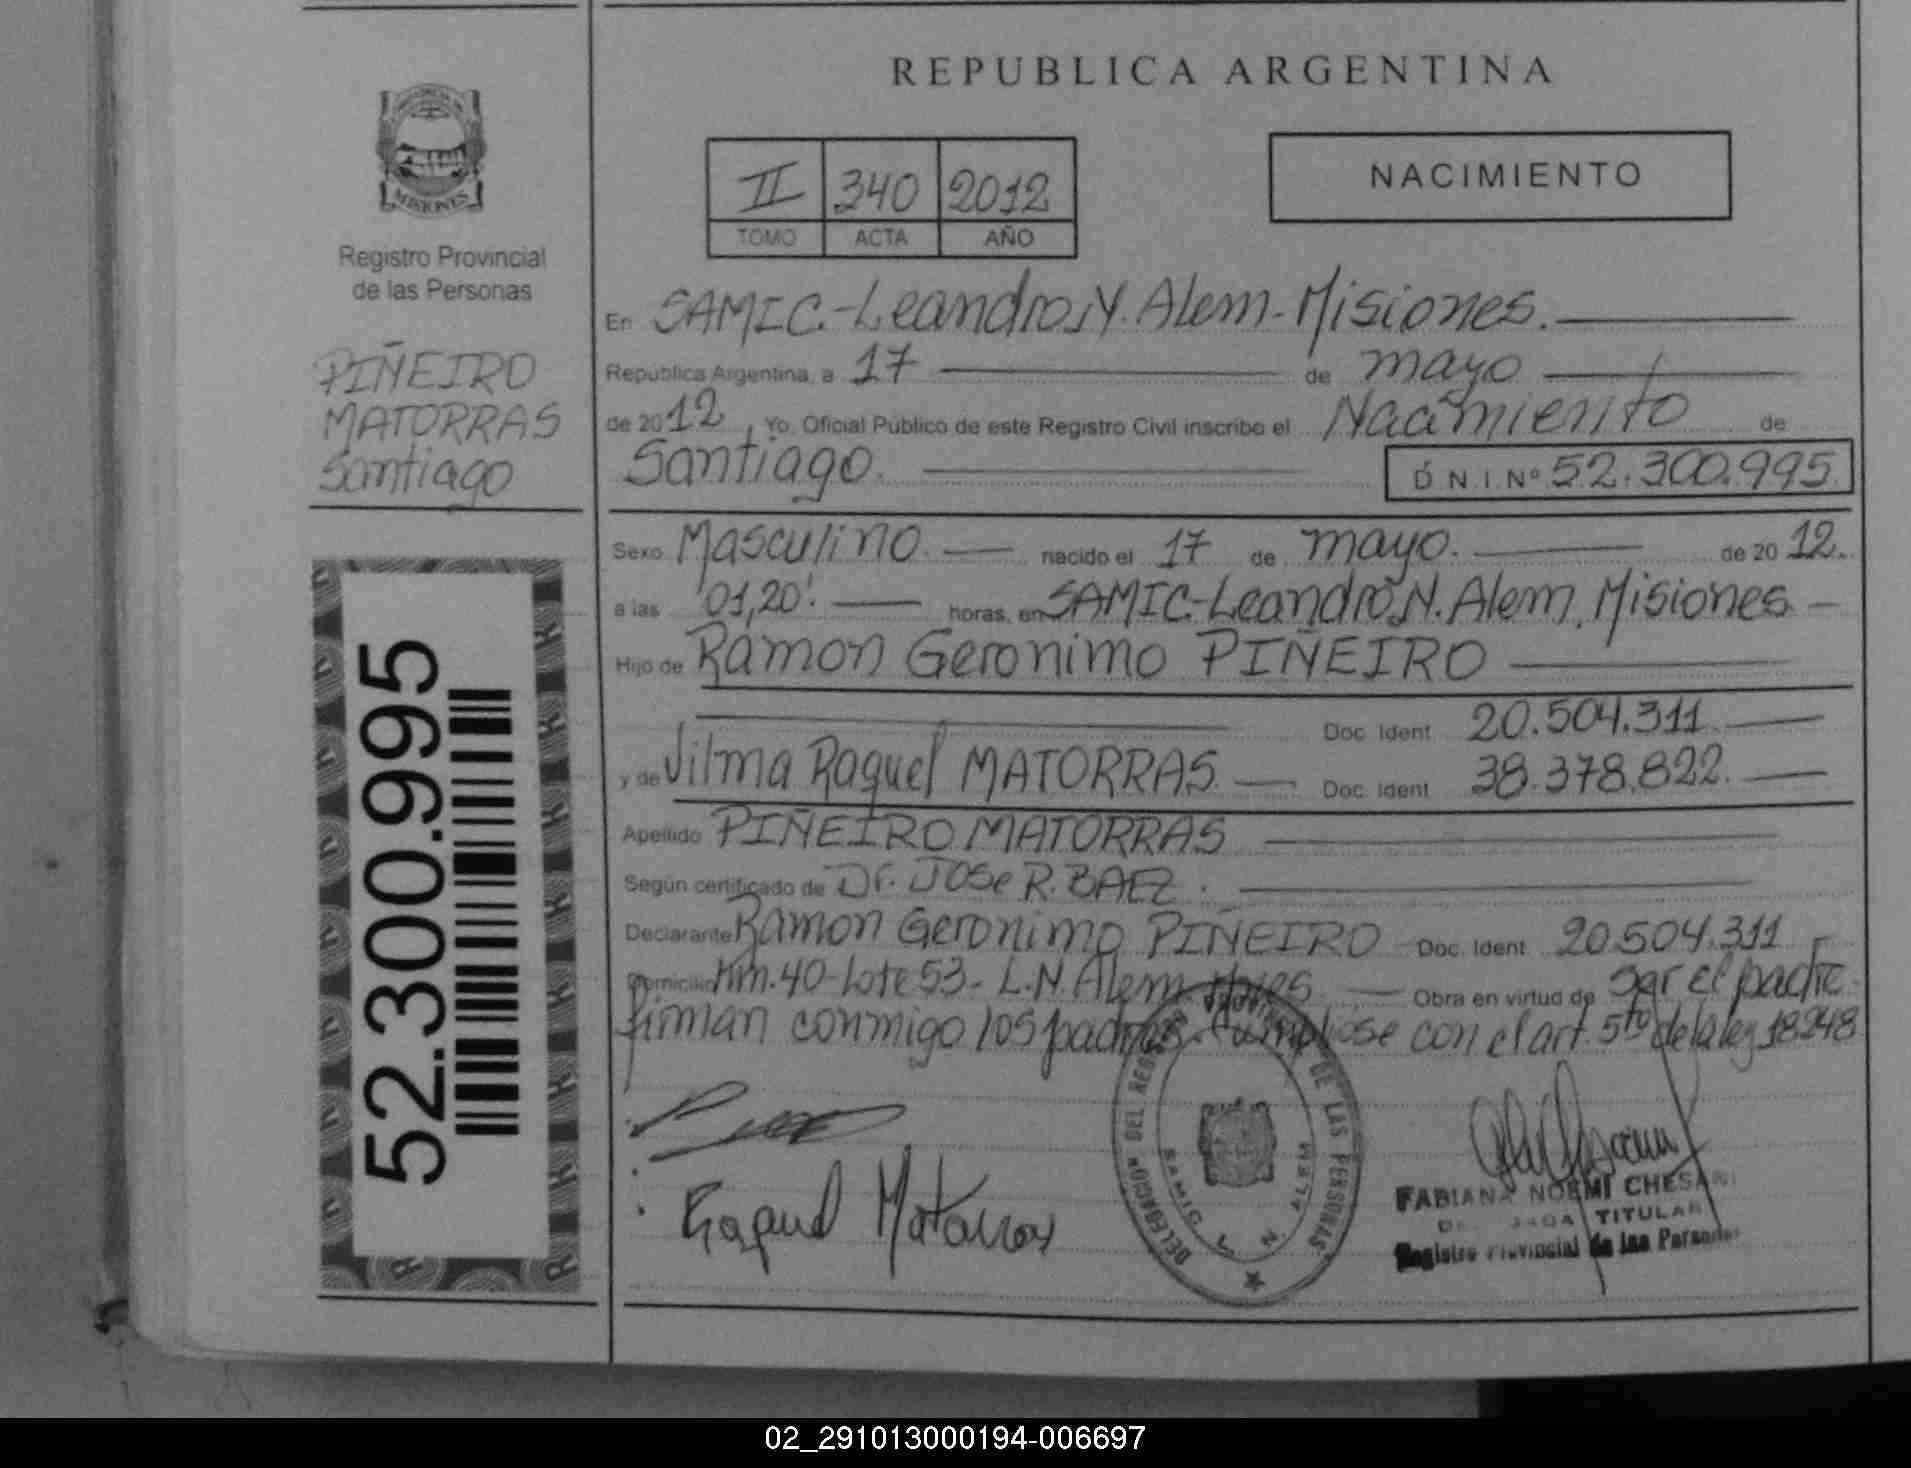 REPUBLICA ARGENTINA
MISIONES
Registro Provincial
de las Personas
PIÑEIRO
MATORRAS
Santiago
52.300.995
II 340 2012
TOMO ACTA AÑO
NACIMIENTO
En SAMIC.-Leandro N. Alem-Misiones.
República Argentina, a 17 de mayo
de 2012, Yo, Oficial Público de este Registro Civil inscribo el Nacimiento de
Santiago. D N I Nº 52.300.995
Sexo Masculino. nacido el 17 de mayo. de 20 12.
a las 01,20'. horas, en SAMIC-Leandro N. Alem, Misiones
Hijo de Ramon Geronimo PIÑEIRO
Doc. Ident. 20.504.311
y de Vilma Raquel MATORRAS. Doc. Ident. 38.378.822.
Apellido PIÑEIRO MATORRAS
Según certificado de Dr. JOSe R. BAEZ.
Declarante Ramon Geronimo PIÑEIRO Doc. Ident. 20.504.311
Domicilio Km. 40-Lote 53- L.N. Alem Obra en virtud de ser el padre
firman conmigo los padres. Cumpliose con el art. 5to de la ley 18248
Raquel Matorras
DELEGACION DEL REGISTRO PROVINCIAL DE LAS PERSONAS
SAMIC L. N. ALEM
FABIANA NOEMI CHESARI
TITULAR
Registro Provincial de las Personas
02_291013000194-006697